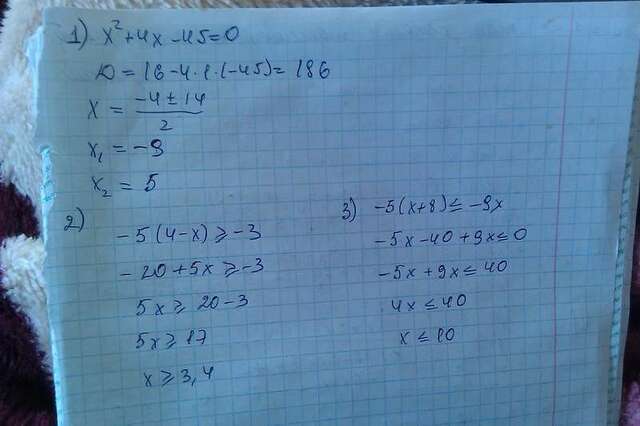 1) x²+4x-45=0
D=16-4·1·(-45)=186
x = (-4±14)/2
x₁ = -9
x₂ = 5
2)
-5(4-x)⩾-3
-20+5x⩾-3
5x⩾20-3
5x⩾17
x⩾3,4
3) -5(x+8)≤-9x
-5x-40+9x≤0
-5x+9x≤40
4x≤40
x≤10